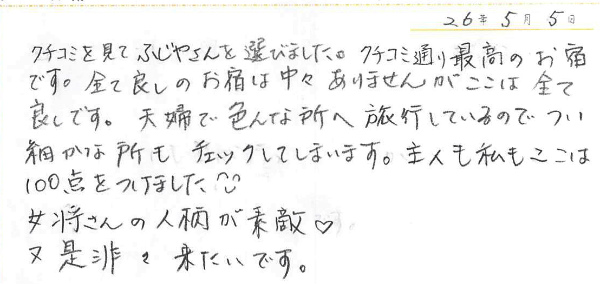 26年 5月 5日
クチコミを見てふじやさんを選びました。クチコミ通り最高のお宿
です。全て良しのお宿は中々ありませんがここは全て
良しです。夫婦で色んな所へ旅行しているのでつい
細かな所もチェックしてしまいます。主人も私もここは
100点をつけました
女将さんの人柄が素敵♡
又是非々来たいです。